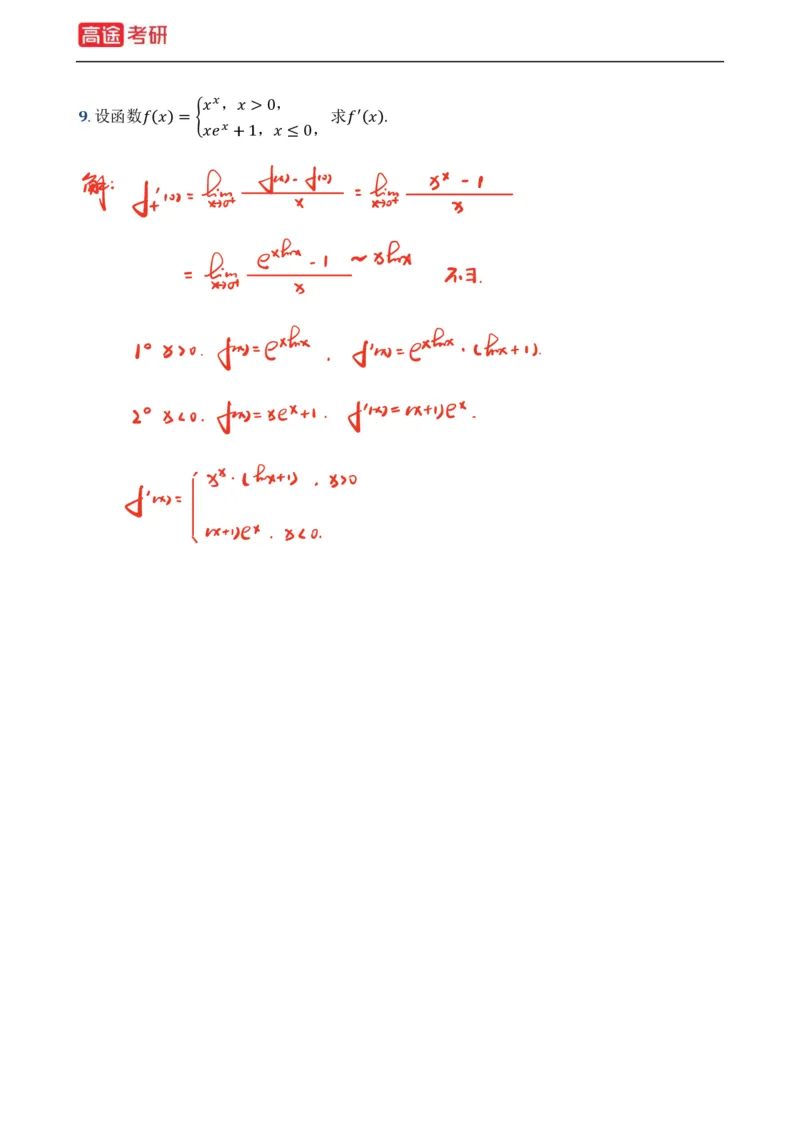 高途考研
9. 设函数f(x) = {x^x，x > 0，
xe^x + 1，x ≤ 0， 求f′(x).
解: f₊′(0) = lim_{x→0⁺} (f(x) - f(0))/x = lim_{x→0⁺} (x^x - 1)/x
= lim_{x→0⁺} (e^{xlnx} - 1)/x ~ xlnx 不∃.
1° x>0. f(x) = e^{xlnx} . f′(x) = e^{xlnx} · (lnx+1).
2° x<0. f(x) = xe^x+1 . f′(x) = (x+1)e^x .
f′(x) = { x^x · (lnx+1) . x>0
(x+1)e^x . x<0.